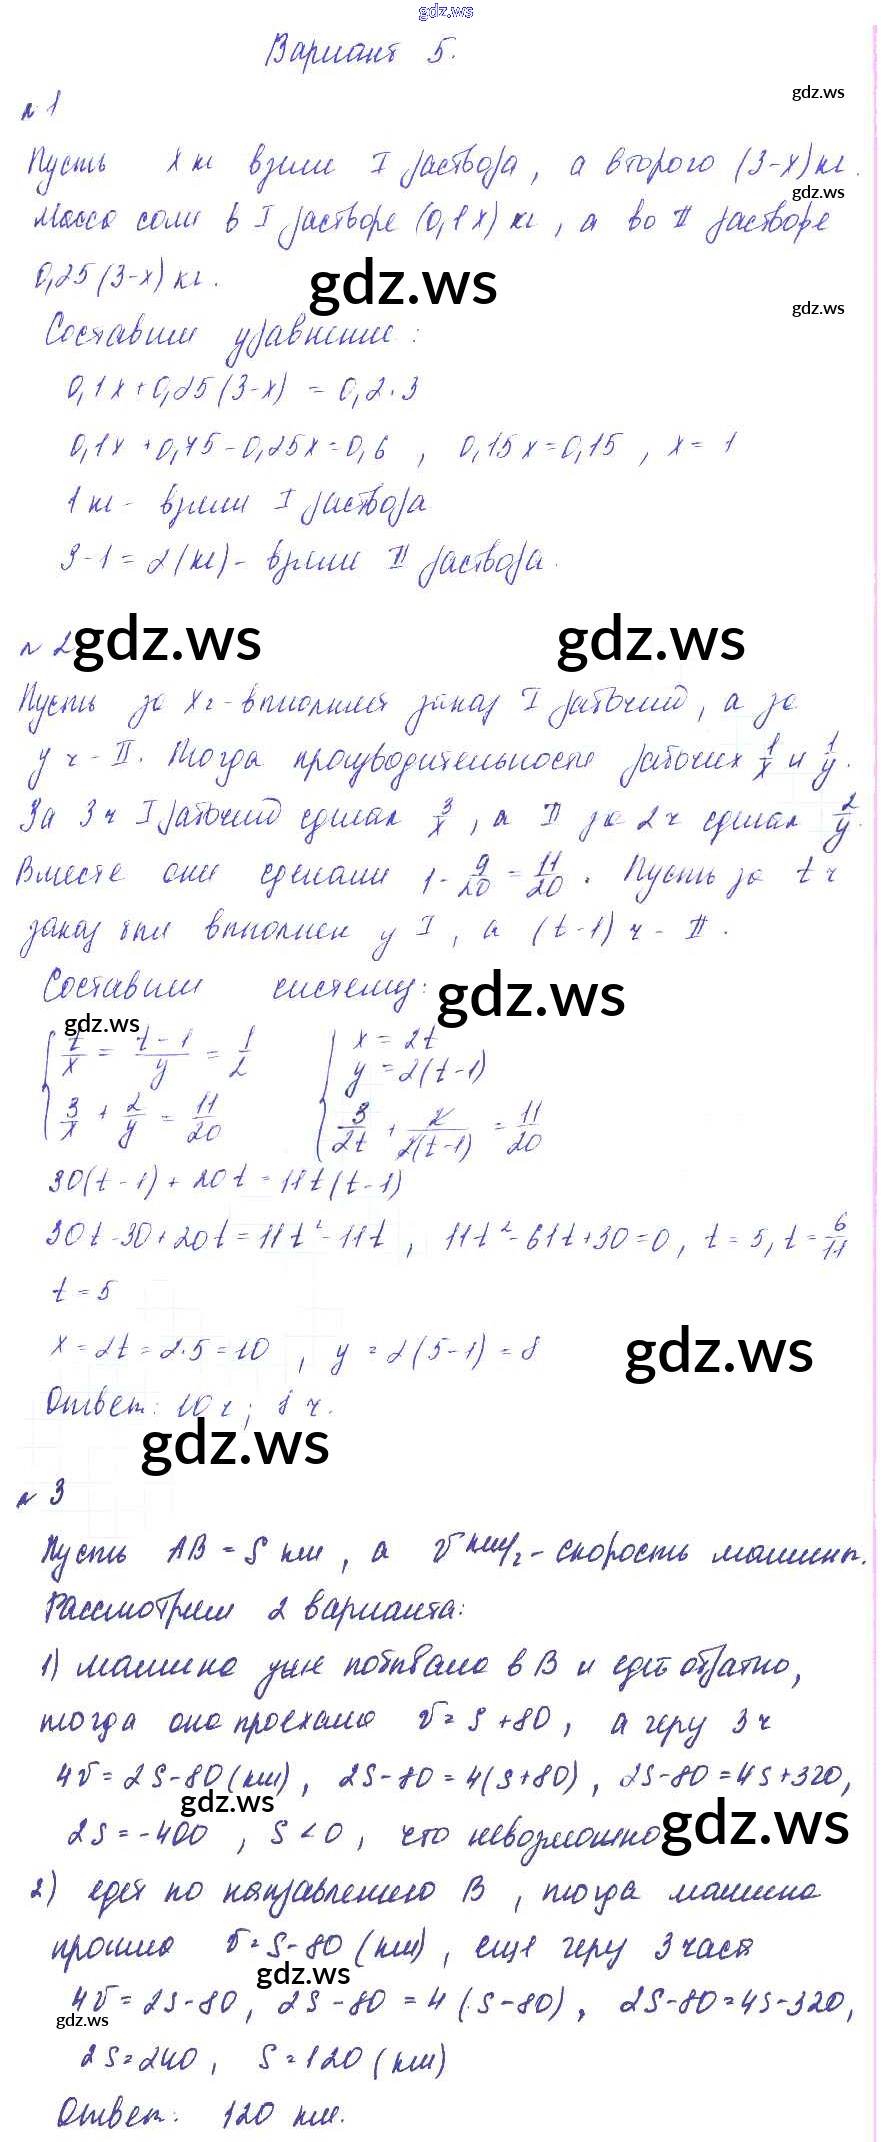 gdz.ws
Вариант 5.
gdz.ws
№ 1
Пусть x кг взяли I раствора, а второго (3-x) кг.
gdz.ws
Масса соли в I растворе (0,1x) кг, а во II растворе
0,25(3-x) кг.
gdz.ws
gdz.ws
Составим уравнение:
0,1x+0,25(3-x) = 0,2·3
0,1x+0,75-0,25x=0,6, 0,15x=0,15, x= 1
1 кг - взяли I раствора
3-1=2(кг)- взяли II раствора.
№ 2
gdz.ws gdz.ws
Пусть за x ч - выполнит заказ I рабочий, а за
y ч - II. Тогда производительности рабочих 1/x и 1/y.
За 3 ч I рабочий сделал 3/x, а II за 2 ч сделал 2/y.
Вместе они сделали 1-9/20=11/20. Пусть за t ч
заказ был выполнен у I, а (t-1) ч - II.
Составим систему:
gdz.ws
gdz.ws
{ t/x = t-1/y = 1/2 { x=2t
y=2(t-1)
3/x + 2/y = 11/20 3/2t + 2/2(t-1) = 11/20
30(t-1)+20t=11t(t-1)
30t-30+20t=11t²-11t, 11t²-61t+30=0, t=5, t=6/11
t=5
x=2t=2·5=10, y=2(5-1)=8
gdz.ws
Ответ: 10 ч; 8 ч.
gdz.ws
№ 3
Пусть AB=S км, а v км/ч - скорость машины.
Рассмотрим 2 варианта:
1) машина уже побывала в B и едет обратно,
тогда она проехала v=S+80, а через 3 ч
4v=2S-80(км), 2S-80=4(S+80), 2S-80=4S+320,
gdz.ws
2S=-400, S<0, что невозможно
gdz.ws
2) едет по направлению B, тогда машина
прошла v=S-80(км), еще через 3 часа
gdz.ws
4v=2S-80, 2S-80=4(S-80), 2S-80=4S-320,
gdz.ws
2S=240, S=120(км)
Ответ: 120 км.